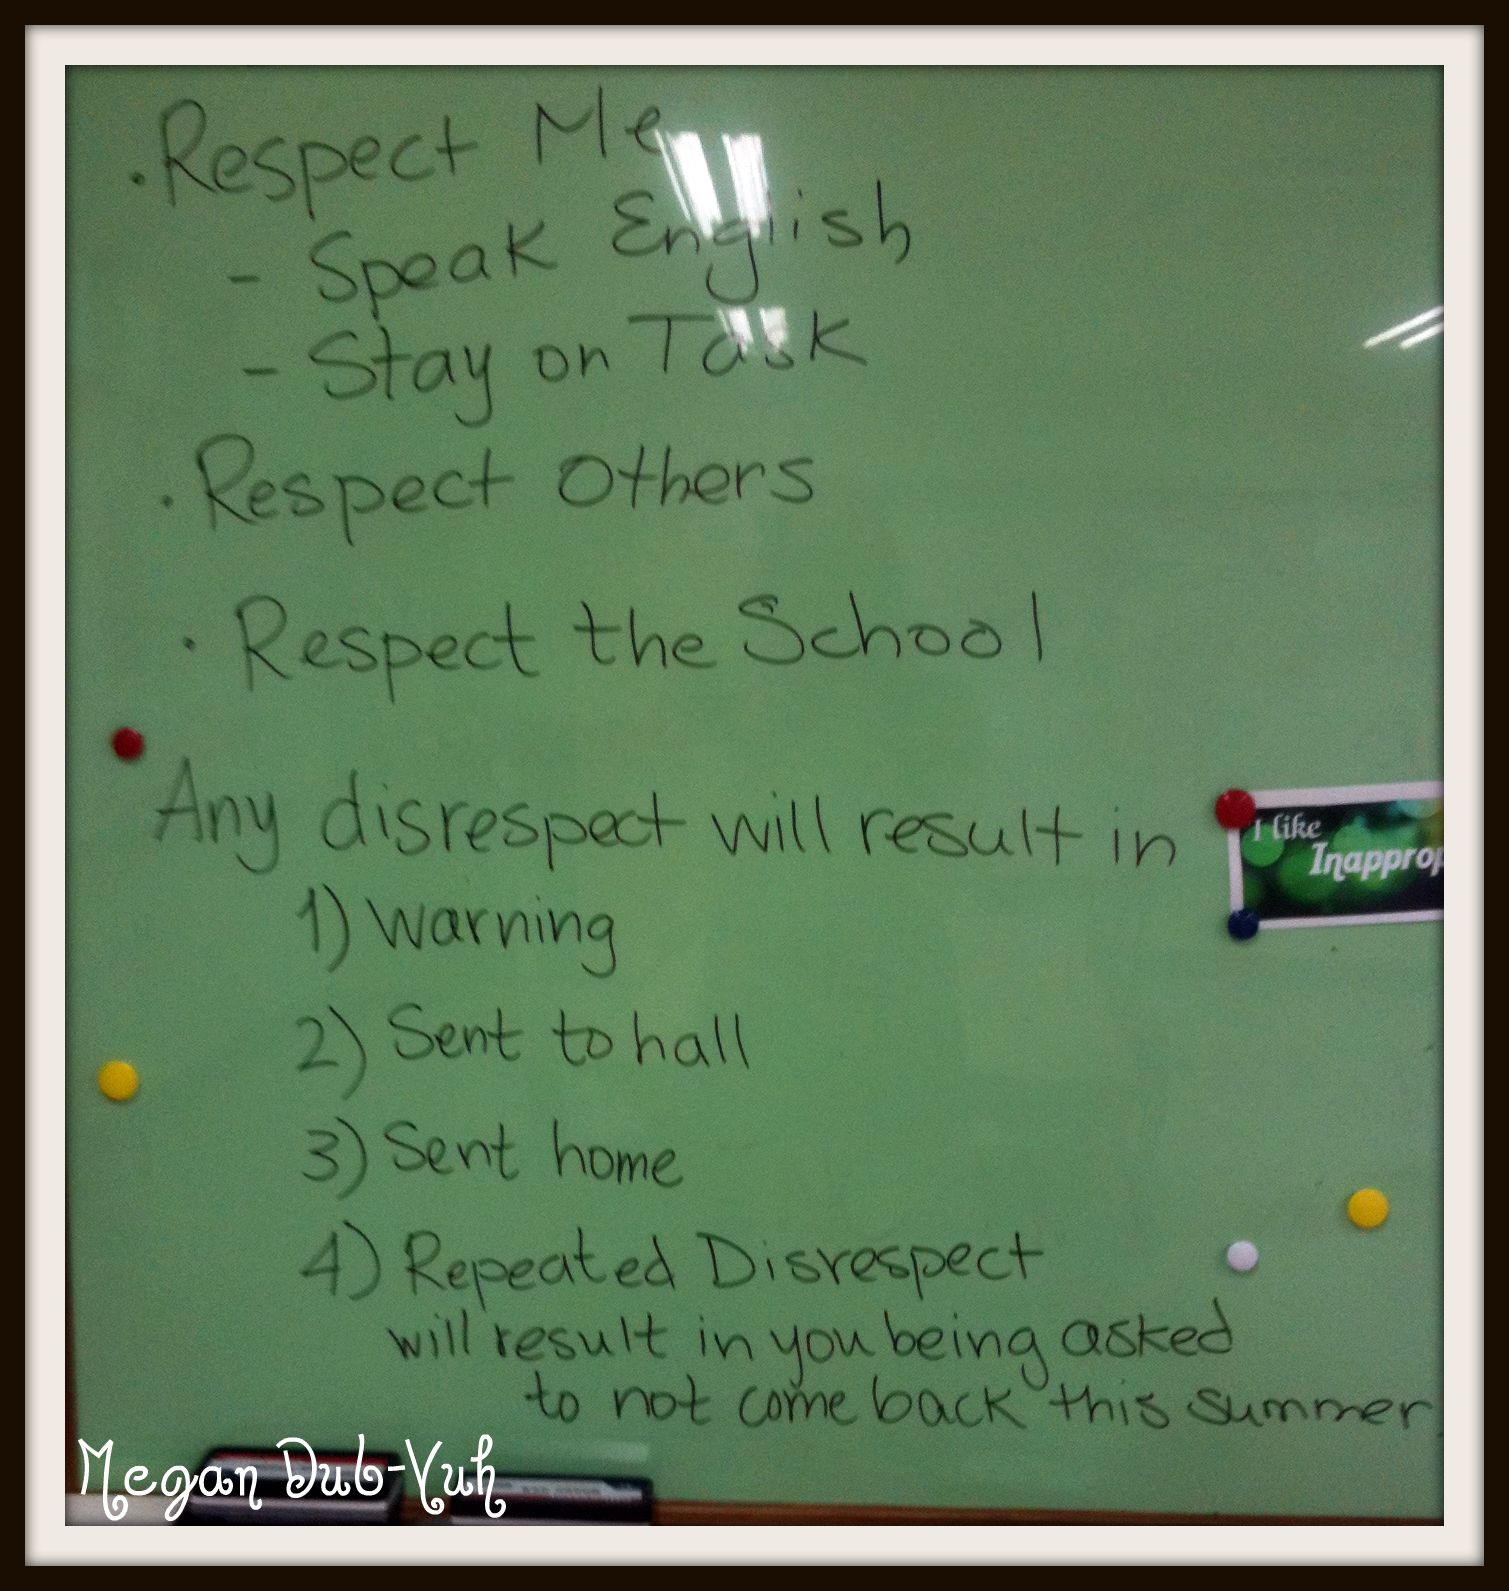 · Respect Me
- Speak English
- Stay on Task
· Respect Others
· Respect the School
Any disrespect will result in
I like
Inapprop
1) Warning
2) Sent to hall
3) Sent home
4) Repeated Disrespect
will result in you being asked
to not come back this summer
Megan Dub-Yuh